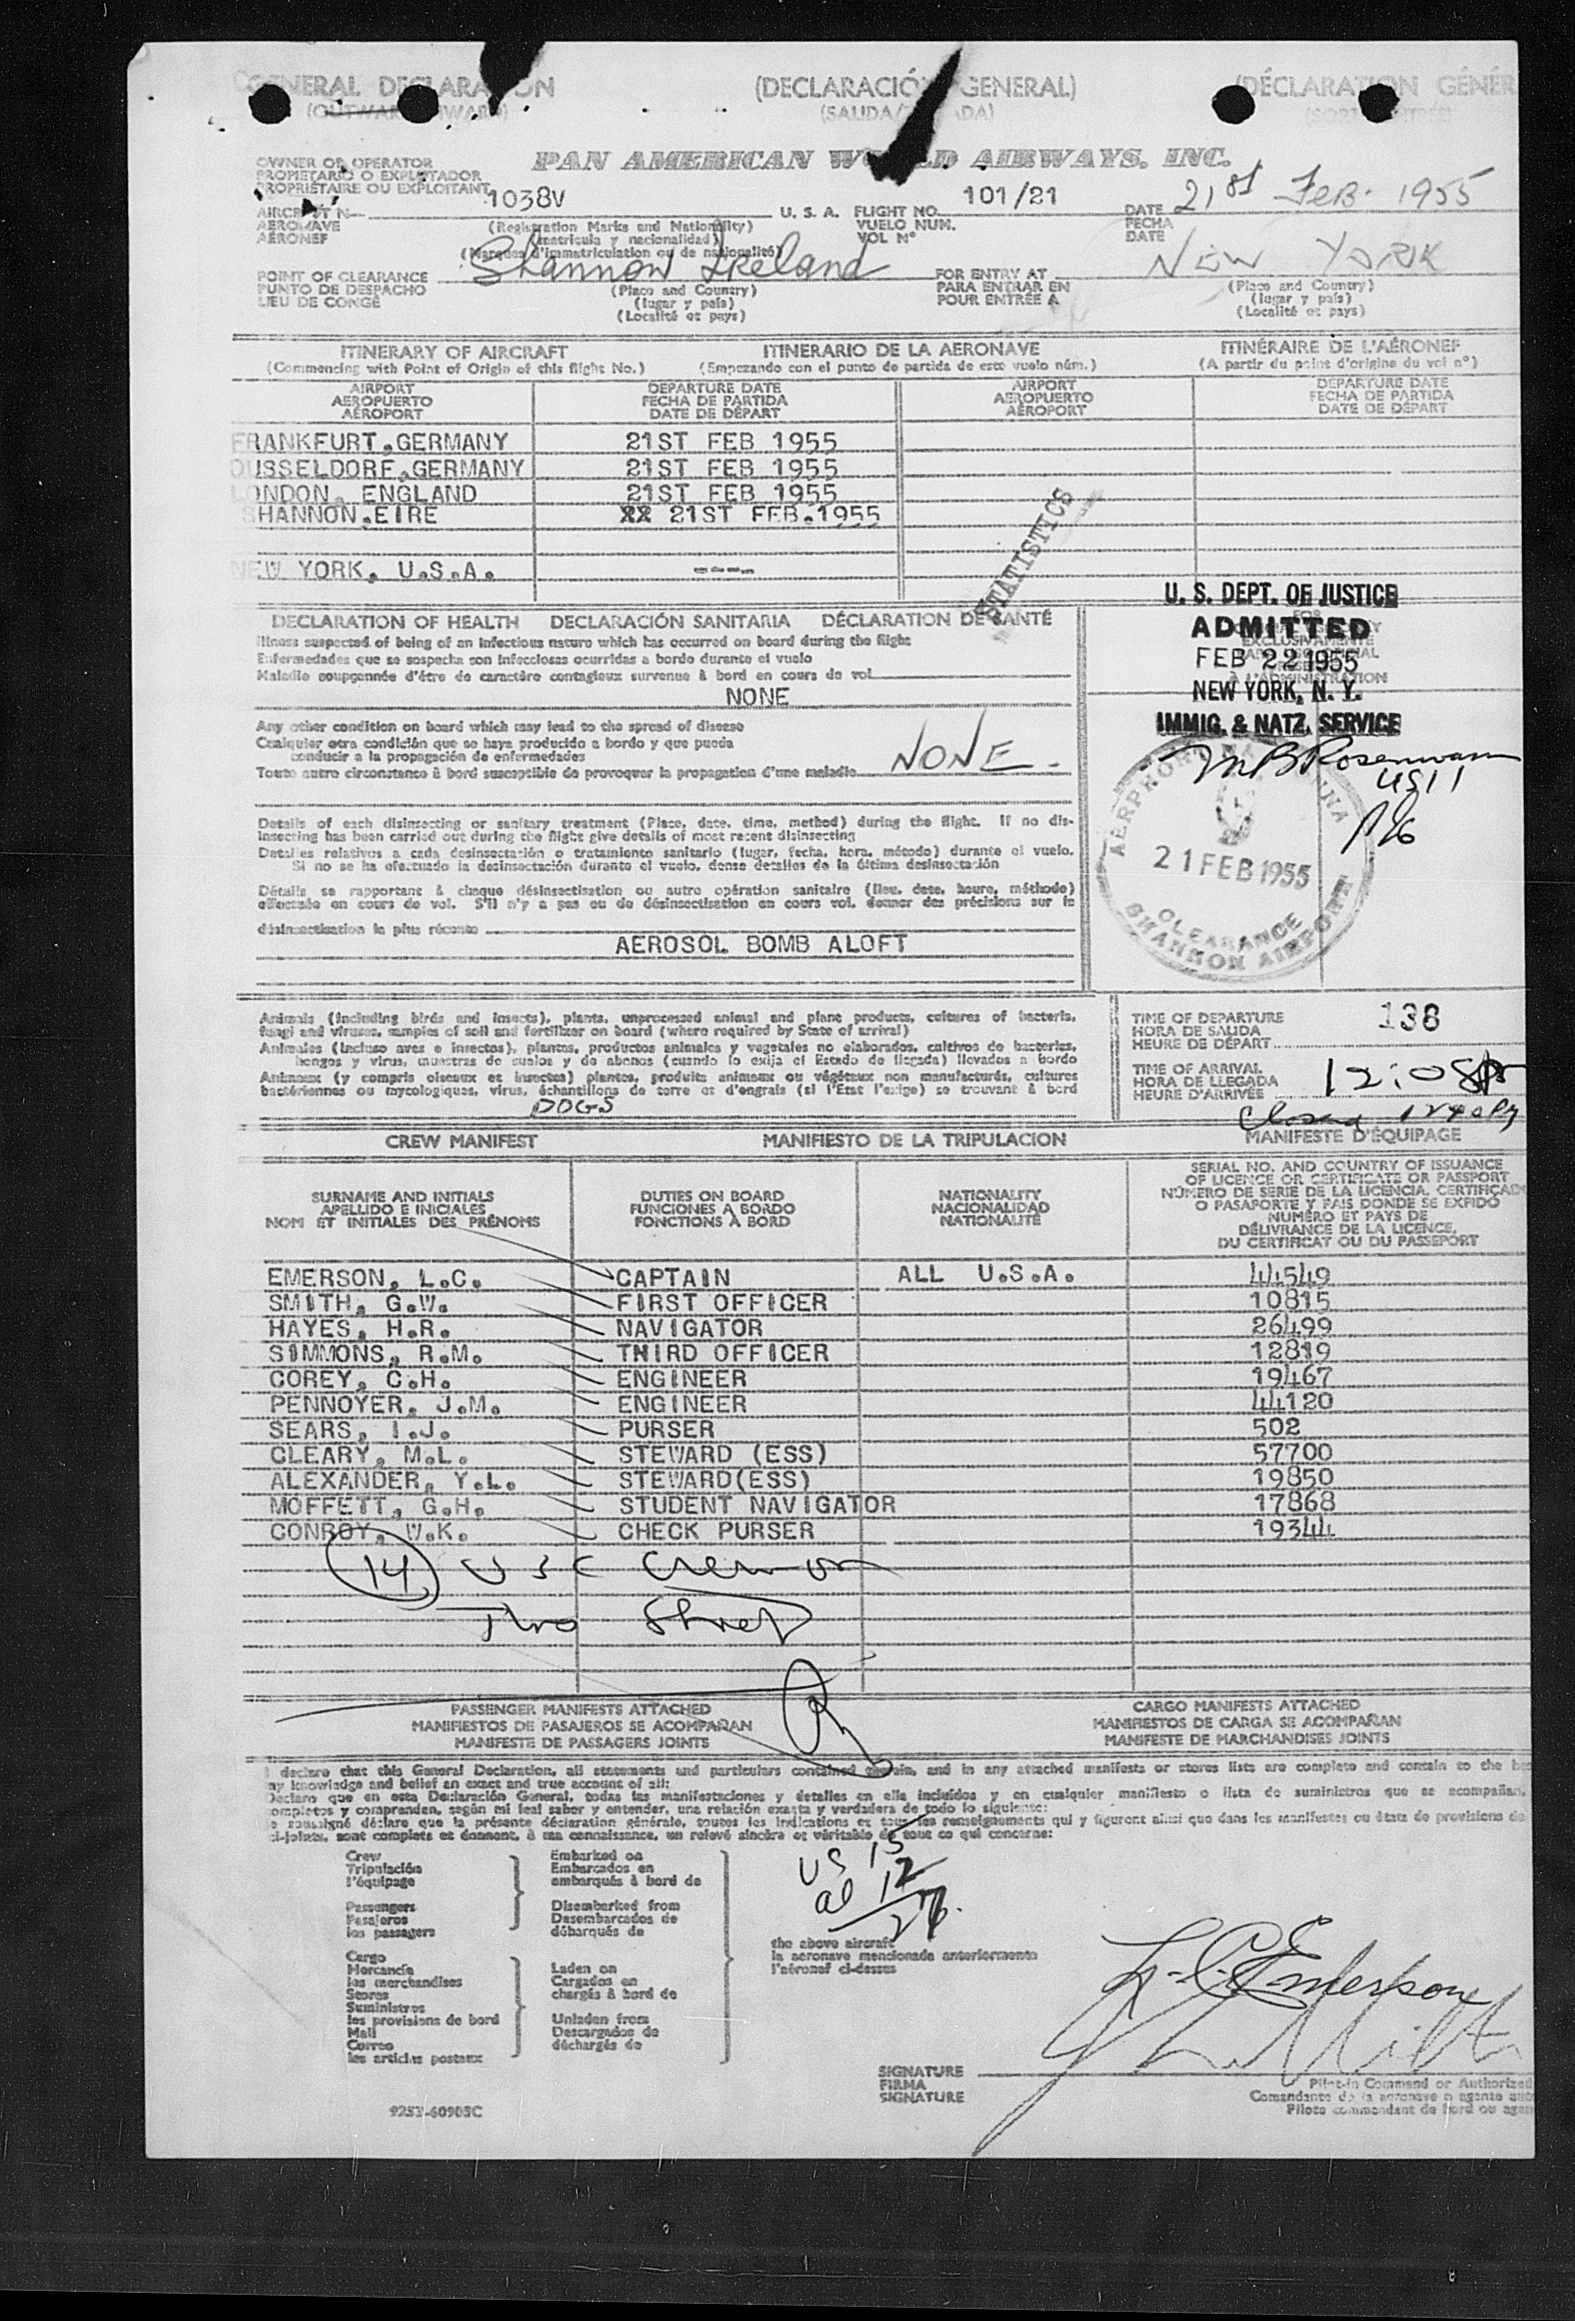 GENERAL DECLARATION (DECLARACIÓN GENERAL) (DÉCLARATION GÉNÉR
(OUTWARD/INWARD) (SALIDA/ENTRADA)
OWNER OR OPERATOR PAN AMERICAN WORLD AIRWAYS, INC.
PROPIETARIO O EXPLOTADOR
PROPRIÉTAIRE OU EXPLOITANT
AIRCRAFT No 1038V U. S. A. FLIGHT NO. 101/21 DATE 21st FEB. 1955
AERONAVE (Registration Marks and Nationality) VUELO NUM. FECHA
AÉRONEF (matrícula y nacionalidad) VOL Nº DATE
(Marques d'immatriculation ou de nationalité)
POINT OF CLEARANCE Shannon Ireland FOR ENTRY AT NEW YORK
PUNTO DE DESPACHO (Place and Country) PARA ENTRAR EN (Place and Country)
LIEU DE CONGÉ (lugar y país) POUR ENTRÉE A (lugar y país)
(Localité et pays) (Localité et pays)
ITINERARY OF AIRCRAFT ITINERARIO DE LA AERONAVE ITINÉRAIRE DE L'AÉRONEF
(Commencing with Point of Origin of this flight No.) (Empezando con el punto de partida de este vuelo núm.) (A partir du point d'origine du vol nº)
AIRPORT DEPARTURE DATE AIRPORT DEPARTURE DATE
AEROPUERTO FECHA DE PARTIDA AEROPUERTO FECHA DE PARTIDA
AÉROPORT DATE DE DÉPART AÉROPORT DATE DE DÉPART
FRANKFURT,GERMANY 21ST FEB 1955
DUSSELDORF,GERMANY 21ST FEB 1955
LONDON, ENGLAND 21ST FEB 1955
SHANNON,EIRE XX 21ST FEB.1955
NEW YORK, U.S.A. ----
STATISTICS
U. S. DEPT. OF JUSTICE
ADMITTED
FEB 22 1955
NEW YORK, N. Y.
IMMIG. & NATZ. SERVICE
DECLARATION OF HEALTH DECLARACIÓN SANITARIA DÉCLARATION DE SANTÉ
Illness suspected of being of an infectious nature which has occurred on board during the flight
Enfermedades que se sospecha son infecciosas ocurridas a bordo durante el vuelo
Maladie soupçonnée d'être de caractère contagieux survenue à bord en cours de vol
NONE
Any other condition on board which may lead to the spread of disease
Cualquier otra condición que se haya producido a bordo y que pueda
conducir a la propagación de enfermedades
Toute autre circonstance à bord susceptible de provoquer la propagation d'une maladie NONE.
21 FEB 1955
CLEARANCE
SHANNON AIRPORT
Details of each disinsecting or sanitary treatment (Place, date, time, method) during the flight. If no dis-
insecting has been carried out during the flight give details of most recent disinsecting
Detalles relativos a cada desinsectación o tratamiento sanitario (lugar, fecha, hora, método) durante el vuelo.
Si no se ha efectuado la desinsectación durante el vuelo, dense detalles de la última desinsectación
Détails se rapportant à chaque désinsectisation ou autre opération sanitaire (lieu, date, heure, méthode)
effectuée en cours de vol. S'il n'y a pas eu de désinsectisation en cours vol, donner des précisions sur la
désinsectisation la plus récente
AEROSOL BOMB ALOFT
Animals (including birds and insects), plants, unprocessed animal and plant products, cultures of bacteria,
fungi and viruses, samples of soil and fertilizer on board (where required by State of arrival)
Animales (incluso aves e insectos), plantas, productos animales y vegetales no elaborados, cultivos de bacterias,
hongos y virus, muestras de suelos y de abonos (cuando lo exija el Estado de llegada) llevados a bordo
Animaux (y compris oiseaux et insectes) plantes, produits animaux ou végétaux non manufacturés, cultures
bactériennes ou mycologiques, virus, échantillons de terre et d'engrais (si l'État l'exige) se trouvant à bord
DOGS
TIME OF DEPARTURE 138
HORA DE SALIDA
HEURE DE DÉPART
TIME OF ARRIVAL 12:08
HORA DE LLEGADA
HEURE D'ARRIVÉE
CREW MANIFEST MANIFIESTO DE LA TRIPULACION MANIFESTE D'ÉQUIPAGE
SURNAME AND INITIALS DUTIES ON BOARD NATIONALITY SERIAL NO. AND COUNTRY OF ISSUANCE
APELLIDO E INICIALES FUNCIONES A BORDO NACIONALIDAD OF LICENCE OR CERTIFICATE OR PASSPORT
NOM ET INITIALES DES PRÉNOMS FONCTIONS À BORD NATIONALITÉ NÚMERO DE SERIE DE LA LICENCIA, CERTIFICADO
O PASAPORTE Y PAIS DONDE SE EXPIDO
NUMÉRO ET PAYS DE
DÉLIVRANCE DE LA LICENCE,
DU CERTIFICAT OU DU PASSEPORT
EMERSON, L.C. CAPTAIN ALL U.S.A. 44549
SMITH, G.W. FIRST OFFICER 10815
HAYES, H.R. NAVIGATOR 26499
SIMMONS, R.M. THIRD OFFICER 12819
COREY, C.H. ENGINEER 19467
PENNOYER, J.M. ENGINEER 44120
SEARS, I.J. PURSER 502
CLEARY, M.L. STEWARD (ESS) 57700
ALEXANDER, Y.L. STEWARD(ESS) 19850
MOFFETT, G.H. STUDENT NAVIGATOR 17868
CONROY, W.K. CHECK PURSER 19344
14 USC Crew on
Two Sheet
PASSENGER MANIFESTS ATTACHED CARGO MANIFESTS ATTACHED
MANIFIESTOS DE PASAJEROS SE ACOMPAÑAN MANIFIESTOS DE CARGA SE ACOMPAÑAN
MANIFESTE DE PASSAGERS JOINTS MANIFESTE DE MARCHANDISES JOINTS
I declare that this General Declaration, all statements and particulars contained therein, and in any attached manifests or stores lists are complete and contain to the be
my knowledge and belief an exact and true account of all:
Declaro que en esta Declaración General, todas las manifestaciones y detalles en ella incluídos y en cualquier manifiesto o lista de suministros que se acompañan,
completos y comprenden, según mi leal saber y entender, una relación exacta y verdadera de todo lo siguiente:
e soussigné déclare que la présente déclaration générale, toutes les indications et tous les renseignements qui y figurent ainsi que dans les manifestes ou états de provisions de
ci-joints, sont complets et donnent, à ma connaissance, un relevé sincère et véritable de tout ce qui concerne:
Crew Embarked on
Tripulación Embarcados en
l'équipage embarqués à bord de
Passengers Disembarked from
Pasajeros Desembarcados de
les passagers débarqués de
US 15
al 12
27
the above aircraft
la aeronave mencionada anteriormente
l'aéronef ci-dessus
Cargo
Mercancía Laden on
les merchandises Cargados en
Stores chargés à bord de
Suministros
les provisions de bord Unladen from
Mail Descargados de
Correo déchargés de
les articles postaux
L.C. Emerson
SIGNATURE Pilot-in Command or Authorized
FIRMA Comandante de la aeronave o agente aut
SIGNATURE Pilote commandant de bord ou agen
9253-60905C